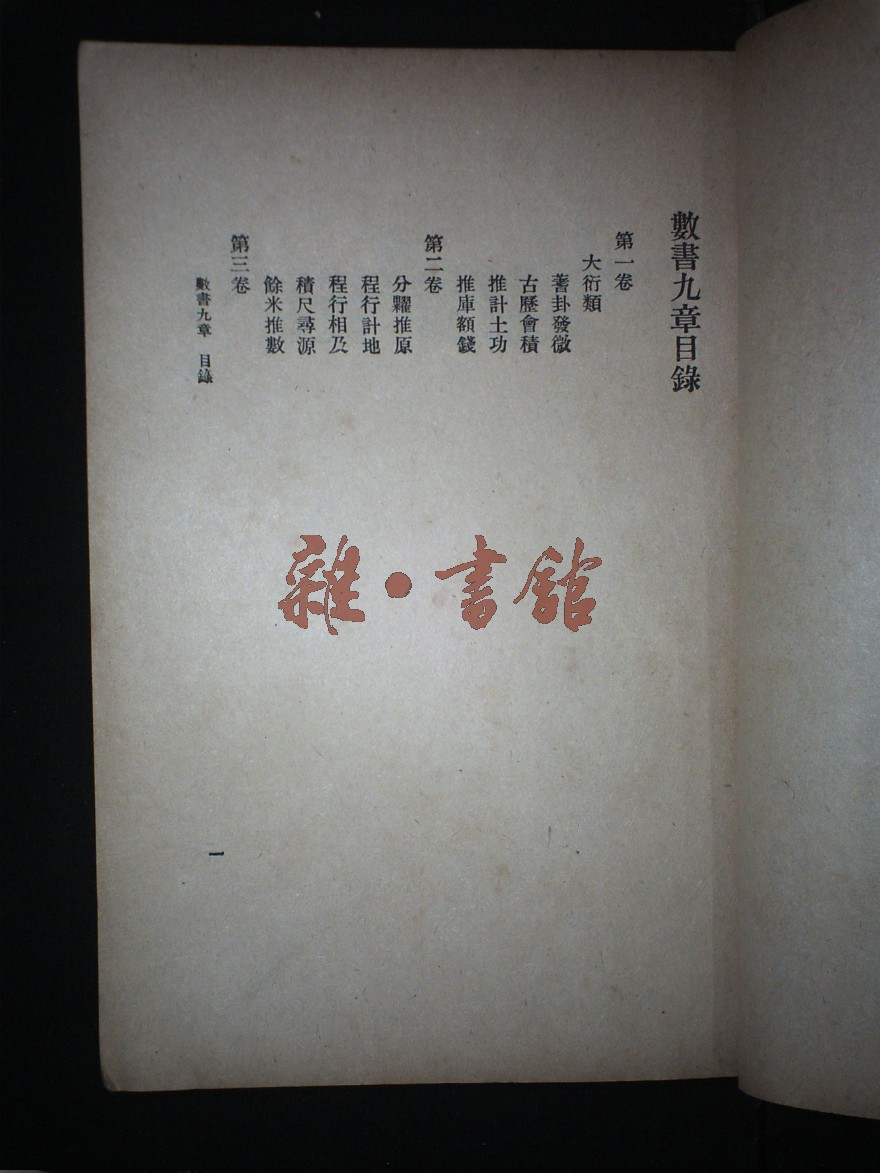 數書九章目錄
第一卷
大衍類
蓍卦發微
古歷會積
推計土功
推庫額錢
第二卷
分糶推原
程行計地
程行相及
積尺尋源
餘米推數
第三卷
數書九章 目錄
一
雜·書館